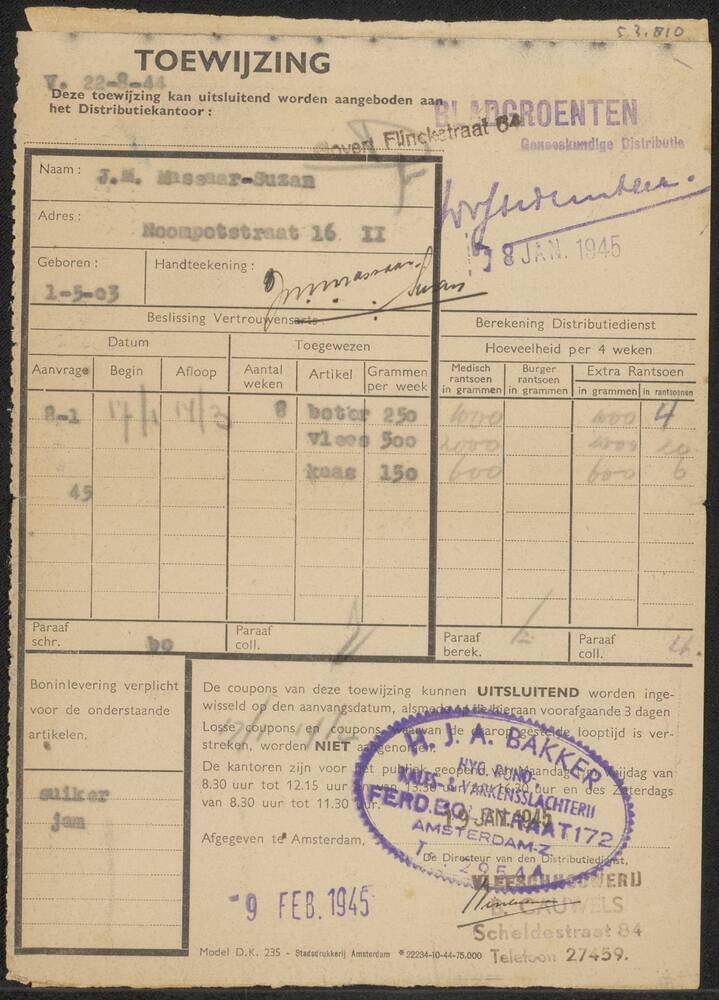 53.810
TOEWIJZING
V. 22-8-44
Deze toewijzing kan uitsluitend worden aangeboden aan
het Distributiekantoor :
Govert Flinckstraat 64
BLADGROENTEN
Geneeskundige Distributie
18 JAN. 1945
Naam : J.M. Massaar-Suzan
Adres :
Roompotstraat 16 II
Geboren : Handteekening :
1-5-03
Beslissing Vertrouwensarts
Berekening Distributiedienst
Datum Toegewezen Hoeveelheid per 4 weken
Aanvrage Begin Afloop Aantal weken Artikel Grammen per week Medisch rantsoen in grammen Burger rantsoen in grammen Extra Rantsoen in grammen in rantsoenen
8-1 17/1 14/3 8 boter 250 1000 1000 4
vlees 500 2000 2000 20
kaas 150 600 600 6
45
Paraaf schr. bo Paraaf coll. Paraaf berek. Paraaf coll.
Bon inlevering verplicht
voor de onderstaande
artikelen.
suiker
jam
De coupons van deze toewijzing kunnen UITSLUITEND worden inge-
wisseld op den aanvangsdatum, alsmede op de hieraan voorafgaande 3 dagen
Losse coupons, en coupons, waarvan de daarop gestelde looptijd is ver-
streken, worden NIET aangenomen.
De kantoren zijn voor het publiek geopend van Maandag t/m Vrijdag van
8.30 uur tot 12.15 uur en van 13.30 uur tot 16.30 uur en des Zaterdags
van 8.30 uur tot 11.30 uur.
H. J. A. BAKKER
HYG. RUND-
KALFS- & VARKENSSLACHTERIJ
FERD. BOLSTRAAT 172
19 JAN. 1945
AMSTERDAM-Z.
Afgegeven te Amsterdam,
De Directeur van den Distributiedienst,
-9 FEB. 1945
VLEESCHHOUWERIJ
B. CAUWELS
Scheldestraat 84
Telefoon 27459.
Model D.K. 235 - Stadsdrukkerij Amsterdam * 22234-10-44-75.000